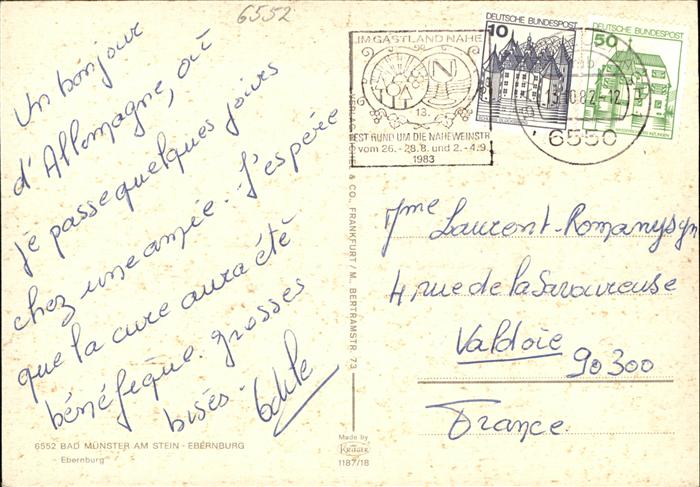 6552
Un bonjour
d'Allemagne, où
je passe quelques joies
chez une amie. J'espère
que la cure aura été
bénéfique. grosses
bises.
6552 BAD MÜNSTER AM STEIN - EBERNBURG
Ebernburg
& CO., FRANKFURT/M. BERTRAMSTR. 73
Made by
KRÜGER
1187/18
IM GASTLAND NAHE
N
13.
FEST RUND UM DIE NAHEWEINSTR
vom 26.-28.8. und 2.-4.9.
1983
DEUTSCHE BUNDESPOST
10
DEUTSCHE BUNDESPOST
50
6550
Mme Laurent-Romanysyn
4, rue de la Savoureuse
Valdoie 90300
France.